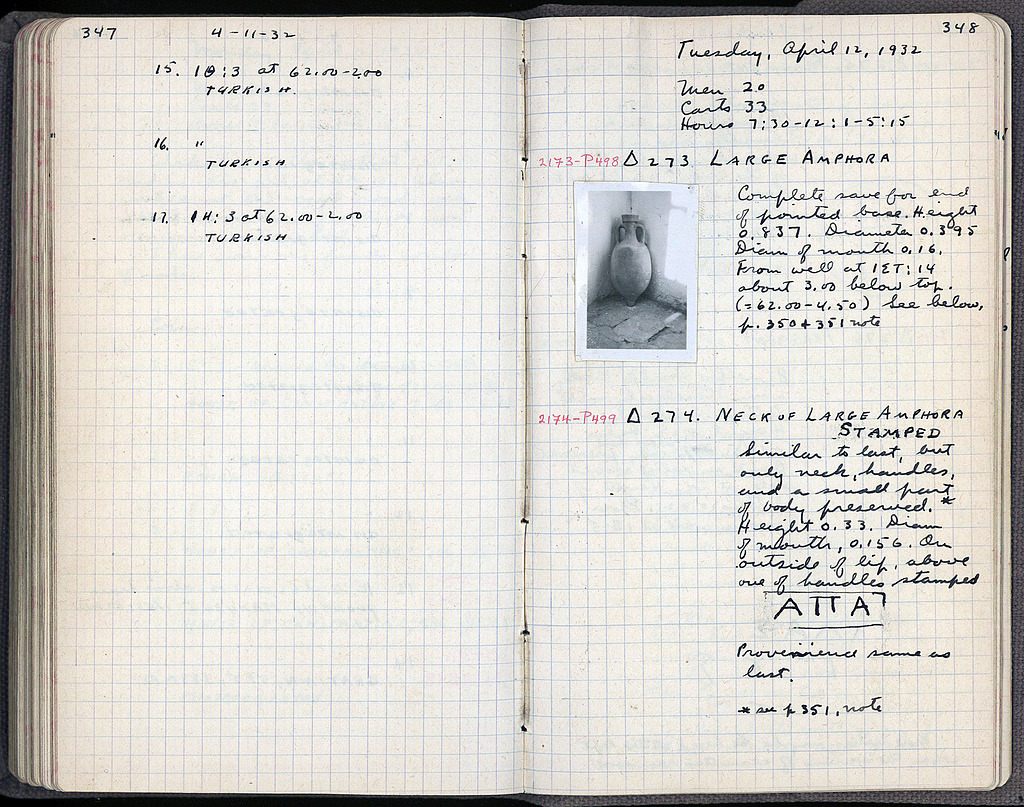 347
4-11-32
15. 10:3 at 62.00-2.00
TURKISH.
16. "
TURKISH
17. 14:3 at 62.00-2.00
TURKISH
348
Tuesday, April 12, 1932
Men 20
Carts 33
Hours 7:30-12:1-5:15
2173-P498 Δ 273 LARGE AMPHORA
Complete save for end
of pointed base. Height
0.837. Diameter 0.395
Diam of mouth 0.16.
From well at 1ET:14
about 3.00 below top.
(=62.00-4.50) See below,
p. 350+351 note
2174-P499 Δ 274. NECK OF LARGE AMPHORA
STAMPED
Similar to last, but
only neck, handles,
and a small part
of body preserved.*
Height 0.33. Diam
of mouth, 0.156. On
outside of lip, above
one of handles stamped
ΑΠΑ
same as
last.
* see p 351, note